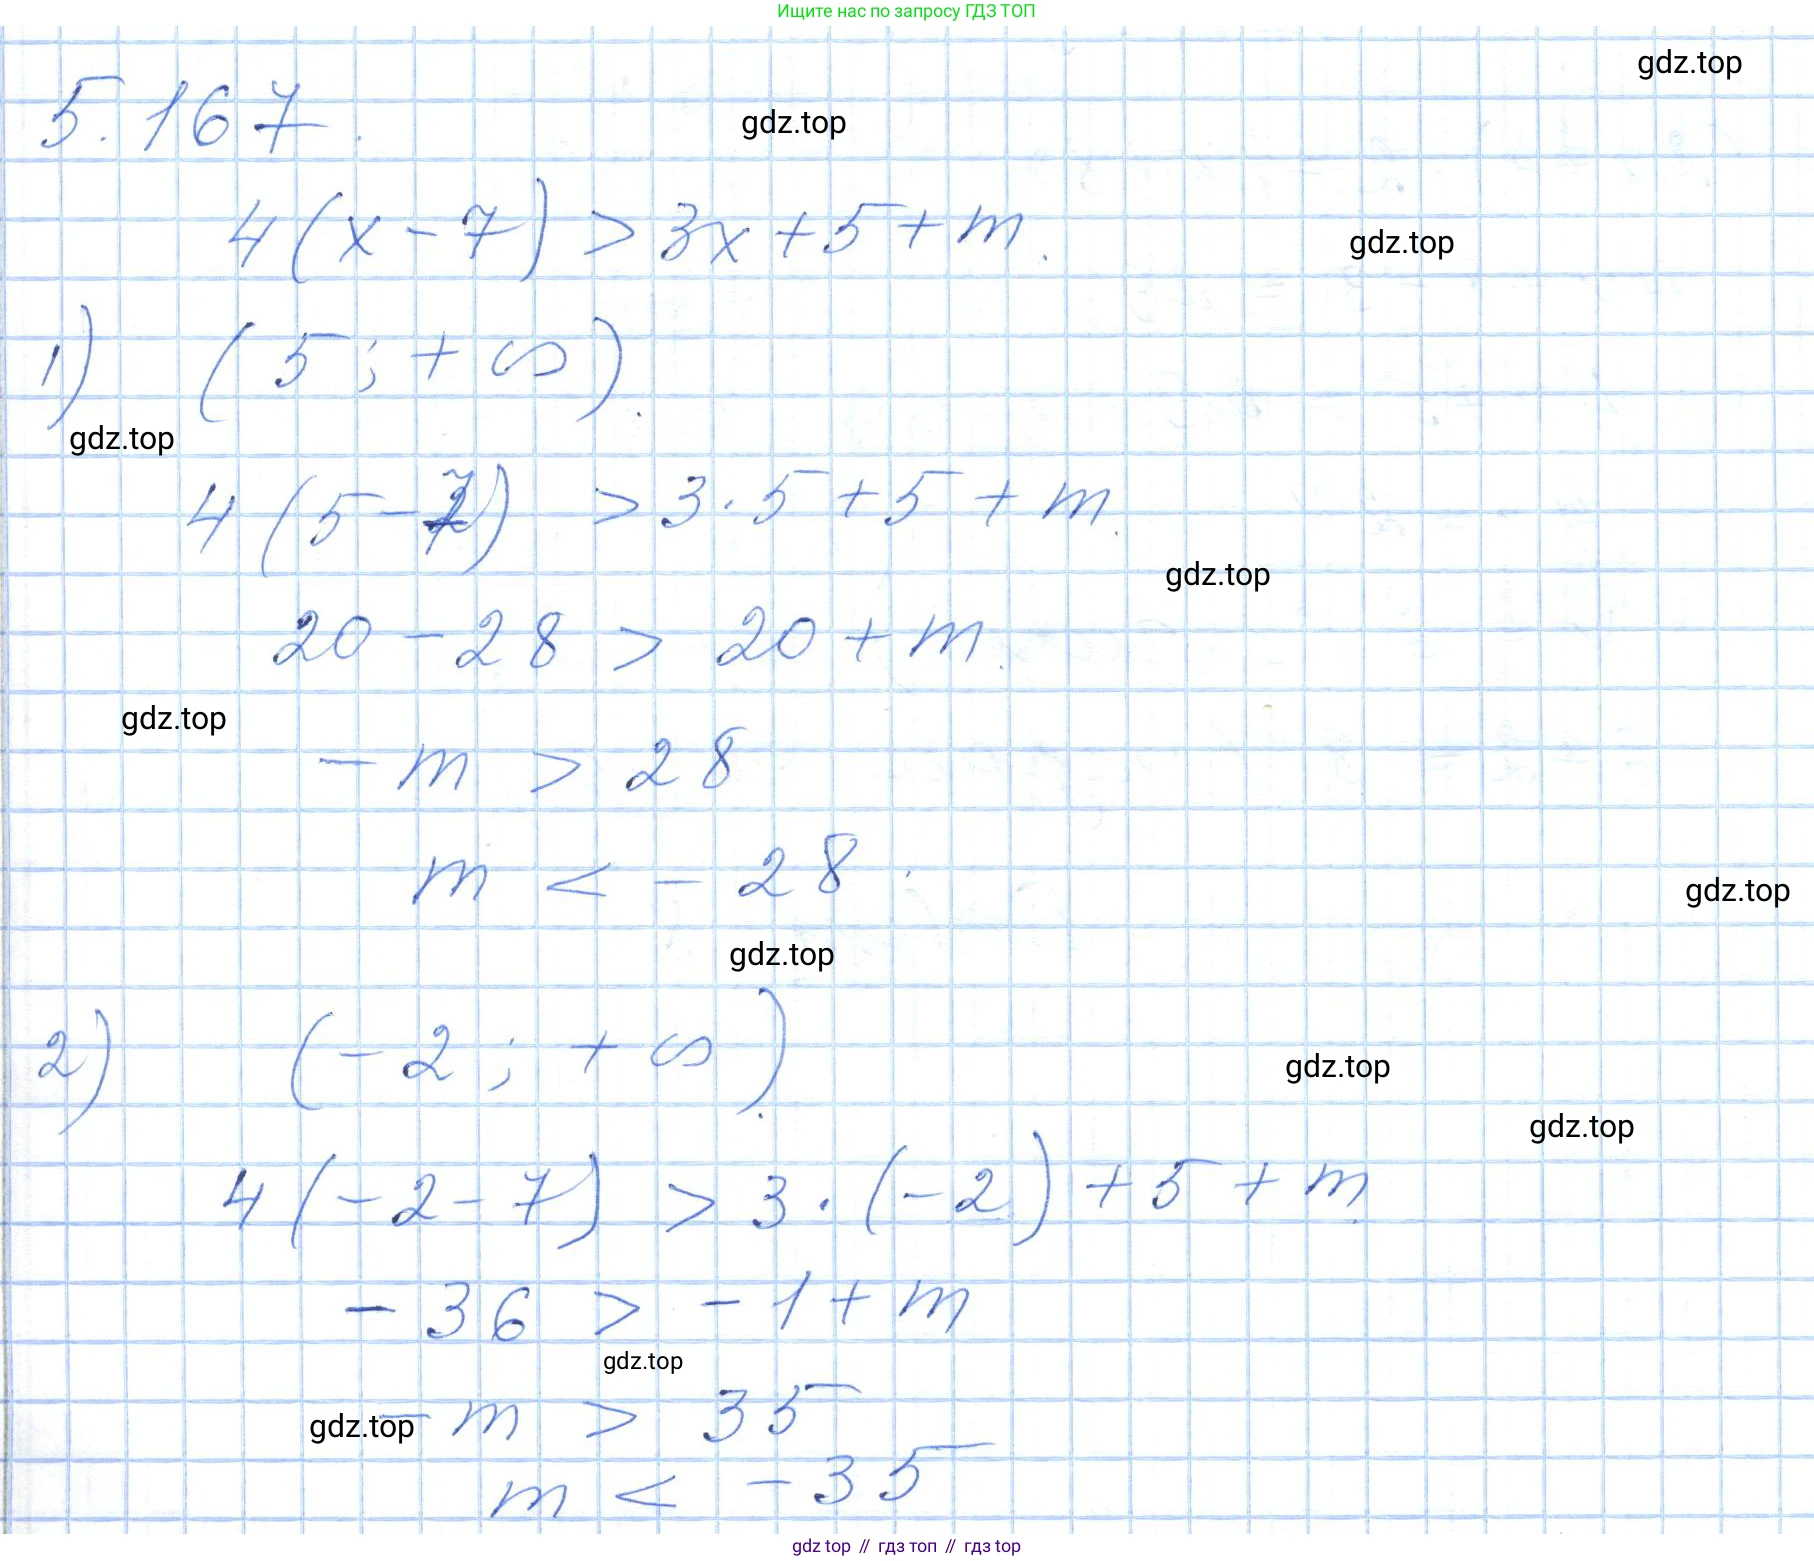 Ищите нас по запросу ГДЗ ТОП
gdz.top
5.167.
gdz.top
4(x-7) > 3x+5+m.
gdz.top
1) (5; +∞).
gdz.top
4(5-7) > 3·5+5+m.
gdz.top
20-28 > 20+m.
gdz.top
-m > 28
m < -28.
gdz.top
gdz.top
2) (-2; +∞).
gdz.top
gdz.top
4(-2-7) > 3·(-2)+5+m.
-36 > -1+m
gdz.top
gdz.top
-m > 35
m < -35
gdz top // гдз топ // гдз top